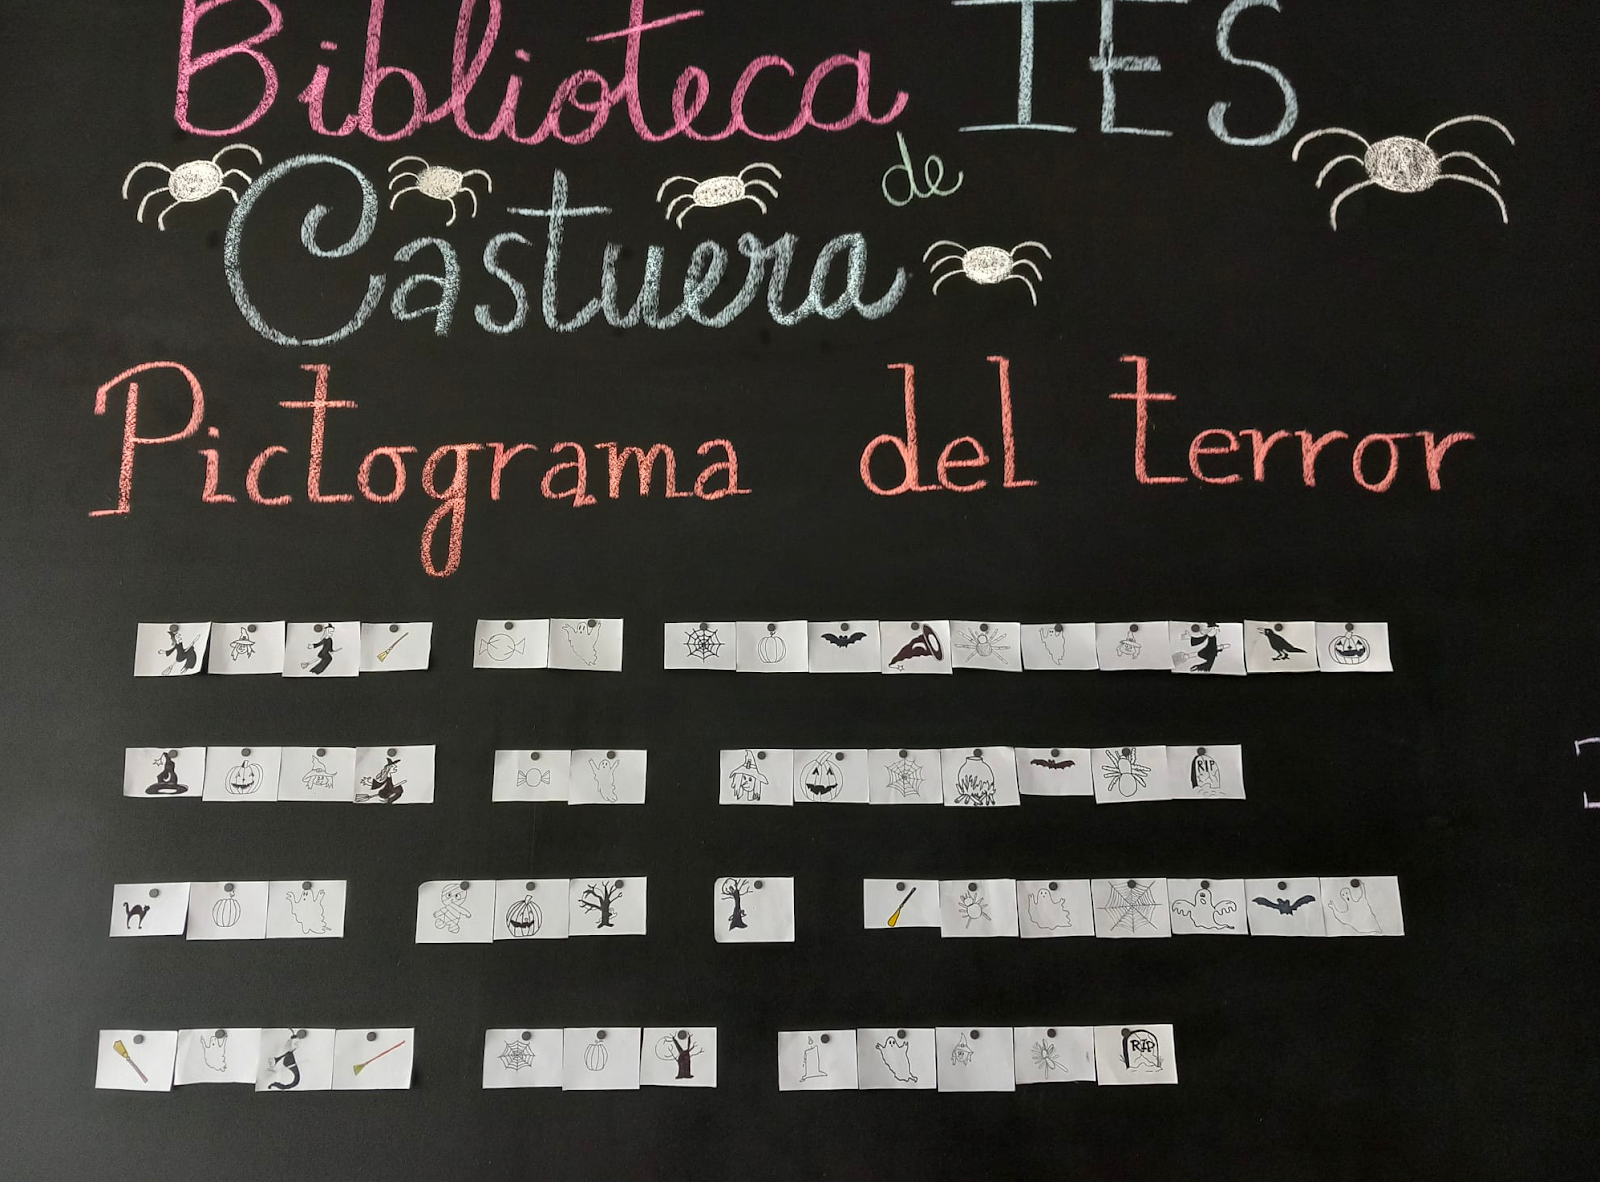 Biblioteca IES
de
Castuera
Pictograma del terror
RIP
RIP